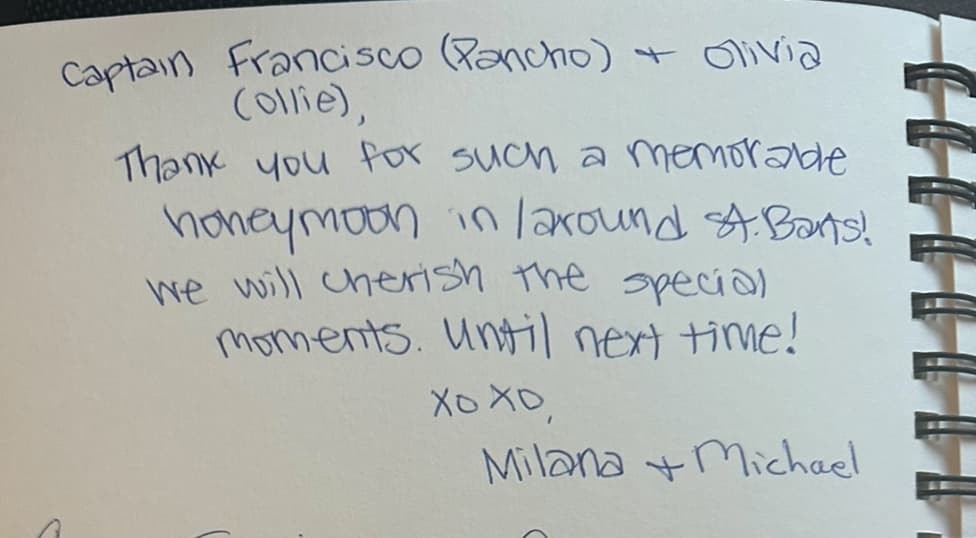 Captain Francisco (Pancho) + Olivia
(Ollie),
Thank you for such a memorable
honeymoon in/around St. Barts!
We will cherish the special
moments. Until next time!
XOXO,
Milana + Michael